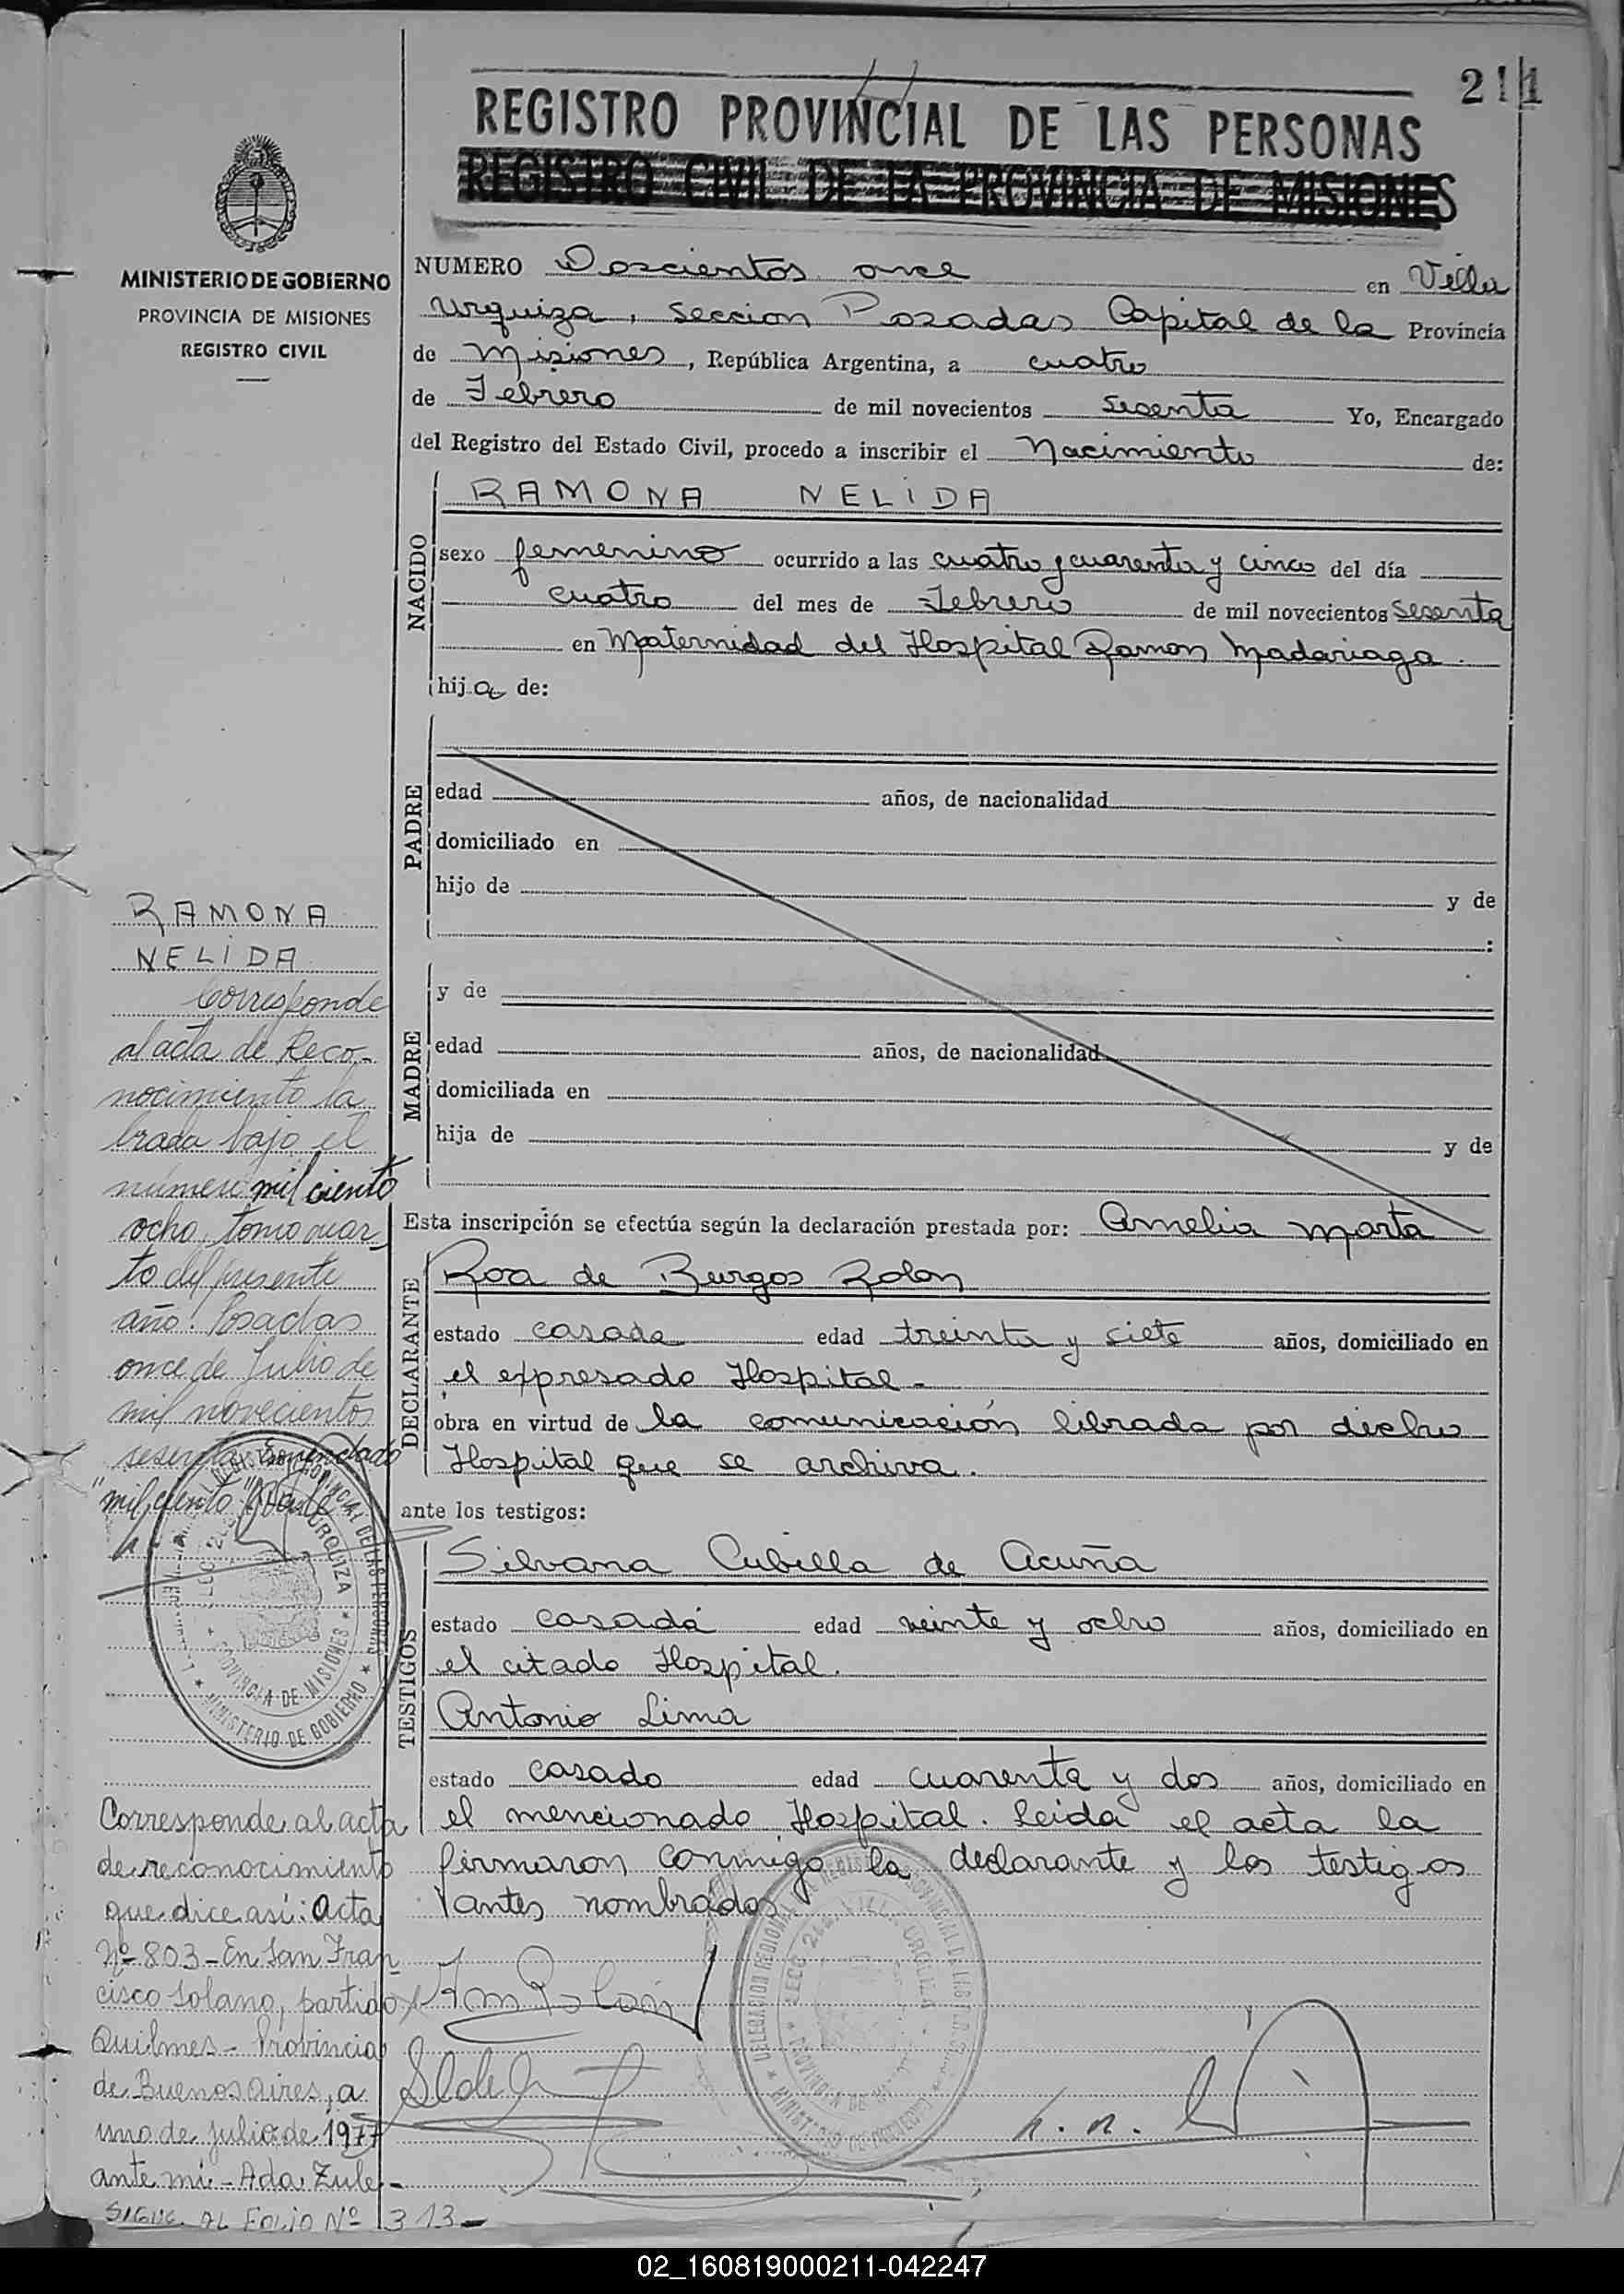 211
REGISTRO PROVINCIAL DE LAS PERSONAS
REGISTRO CIVIL DE LA PROVINCIA DE MISIONES
MINISTERIO DE GOBIERNO
PROVINCIA DE MISIONES
REGISTRO CIVIL
NUMERO Doscientos once en Villa
Urquiza, seccion Posadas Capital de la Provincia
de Misiones, República Argentina, a cuatro
de Febrero de mil novecientos sesenta Yo, Encargado
del Registro del Estado Civil, procedo a inscribir el Nacimiento de:
NACIDO
RAMONA NELIDA
sexo femenino ocurrido a las cuatro y cuarenta y cinco del día
cuatro del mes de Febrero de mil novecientos sesenta
en Maternidad del Hospital Ramon Madariaga.
hija de:
PADRE
edad años, de nacionalidad
domiciliado en
hijo de y de
:
MADRE
y de
edad años, de nacionalidad
domiciliada en
hija de y de
Esta inscripción se efectúa según la declaración prestada por: Amelia Marta
DECLARANTE
Roa de Burgos Rolon
estado casada edad treinta y siete años, domiciliado en
el expresado Hospital-
obra en virtud de la comunicación librada por dicho
Hospital que se archiva.
ante los testigos:
TESTIGOS
Silvana Cubilla de Acuña
estado casada edad veinte y ocho años, domiciliado en
el citado Hospital.
Antonio Lima
estado casado edad cuarenta y dos años, domiciliado en
el mencionado Hospital. Leida el acta la
firmaron conmigo la declarante y los testigos
antes nombrados.
RAMONA
NELIDA
Corresponde
al acta de Reco-
nocimiento la
brada bajo el
número mil ciento
ocho, tomo cuar-
to del presente
año. Posadas
once de Julio de
mil novecientos
sesenta Enmendado
"mil ciento" Vale
MINISTERIO DE GOBIERNO
PROVINCIA DE MISIONES
URQUIZA
Corresponde al acta
de reconocimiento
que dice así: Acta
Nº 803-En San Fran-
cisco Solano, partido
Quilmes- Provincia
de Buenos Aires, a
uno de julio de 1977
ante mi-Ada Zule-
Sigue al Folio Nº 313-
02_160819000211-042247